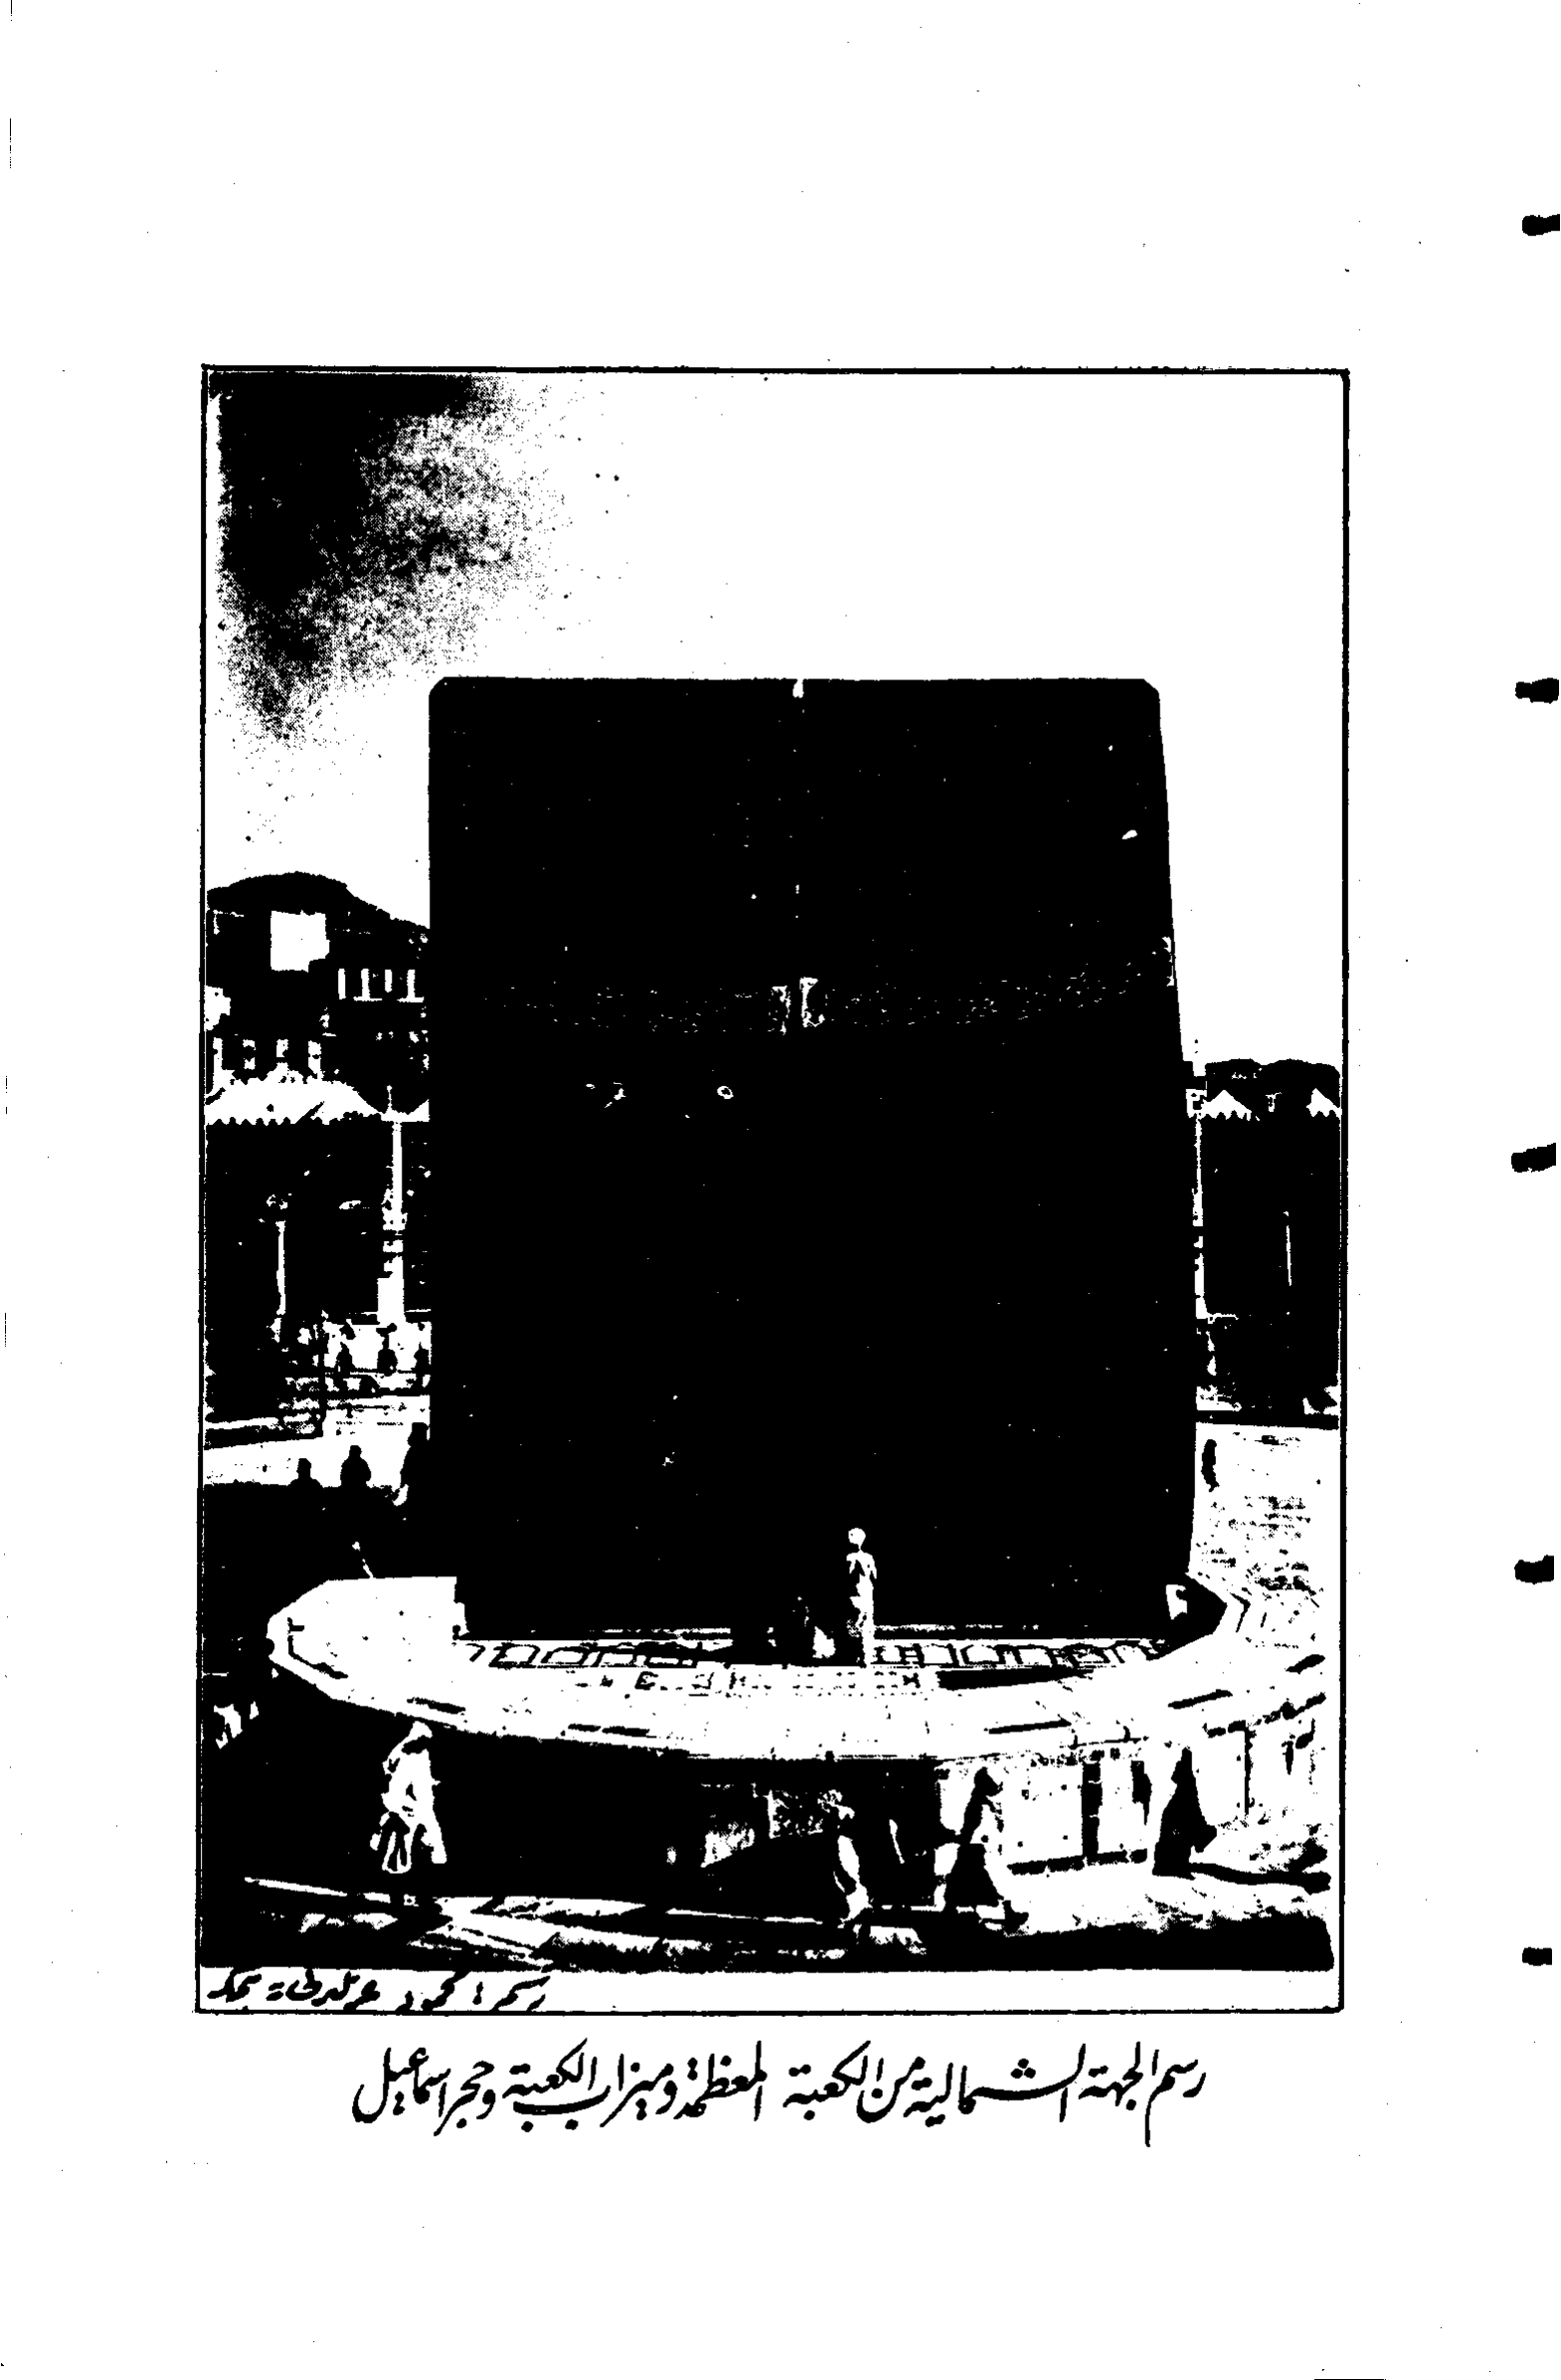 رسم
رسم الجهة الشمالية من الكعبة المعظمة وميزاب الكعبة وحجر اسماعيل